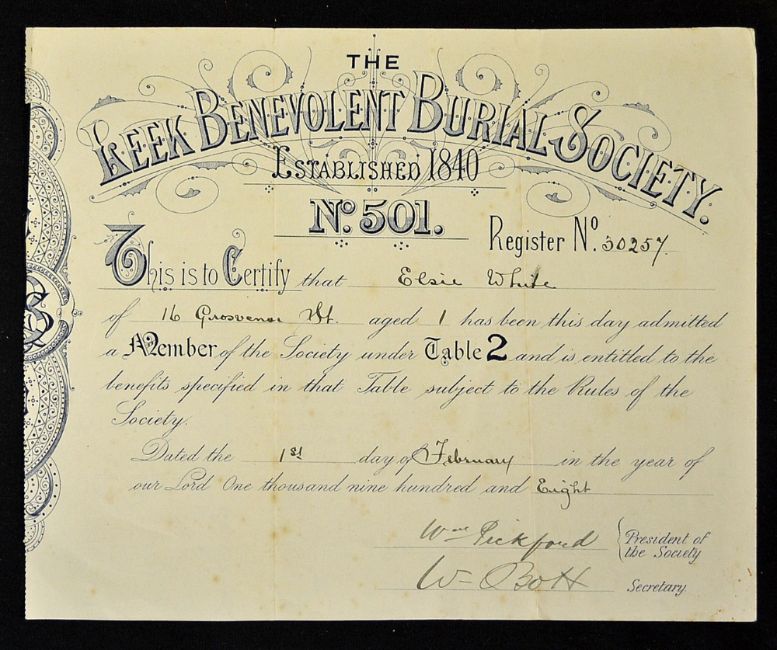 THE
LEEK BENEVOLENT BURIAL SOCIETY.
ESTABLISHED 1840
No. 501.
Register No. 30257.
This is to Certify that Elsie White
of 16 Grosvenor St. aged 1 has been this day admitted
a Member of the Society under Table 2 and is entitled to the
benefits specified in that Table subject to the Rules of the
Society.
Dated the 1st day of February in the year of
our Lord One thousand nine hundred and Eight
Wm Pickford President of
the Society
Wm Bott Secretary.